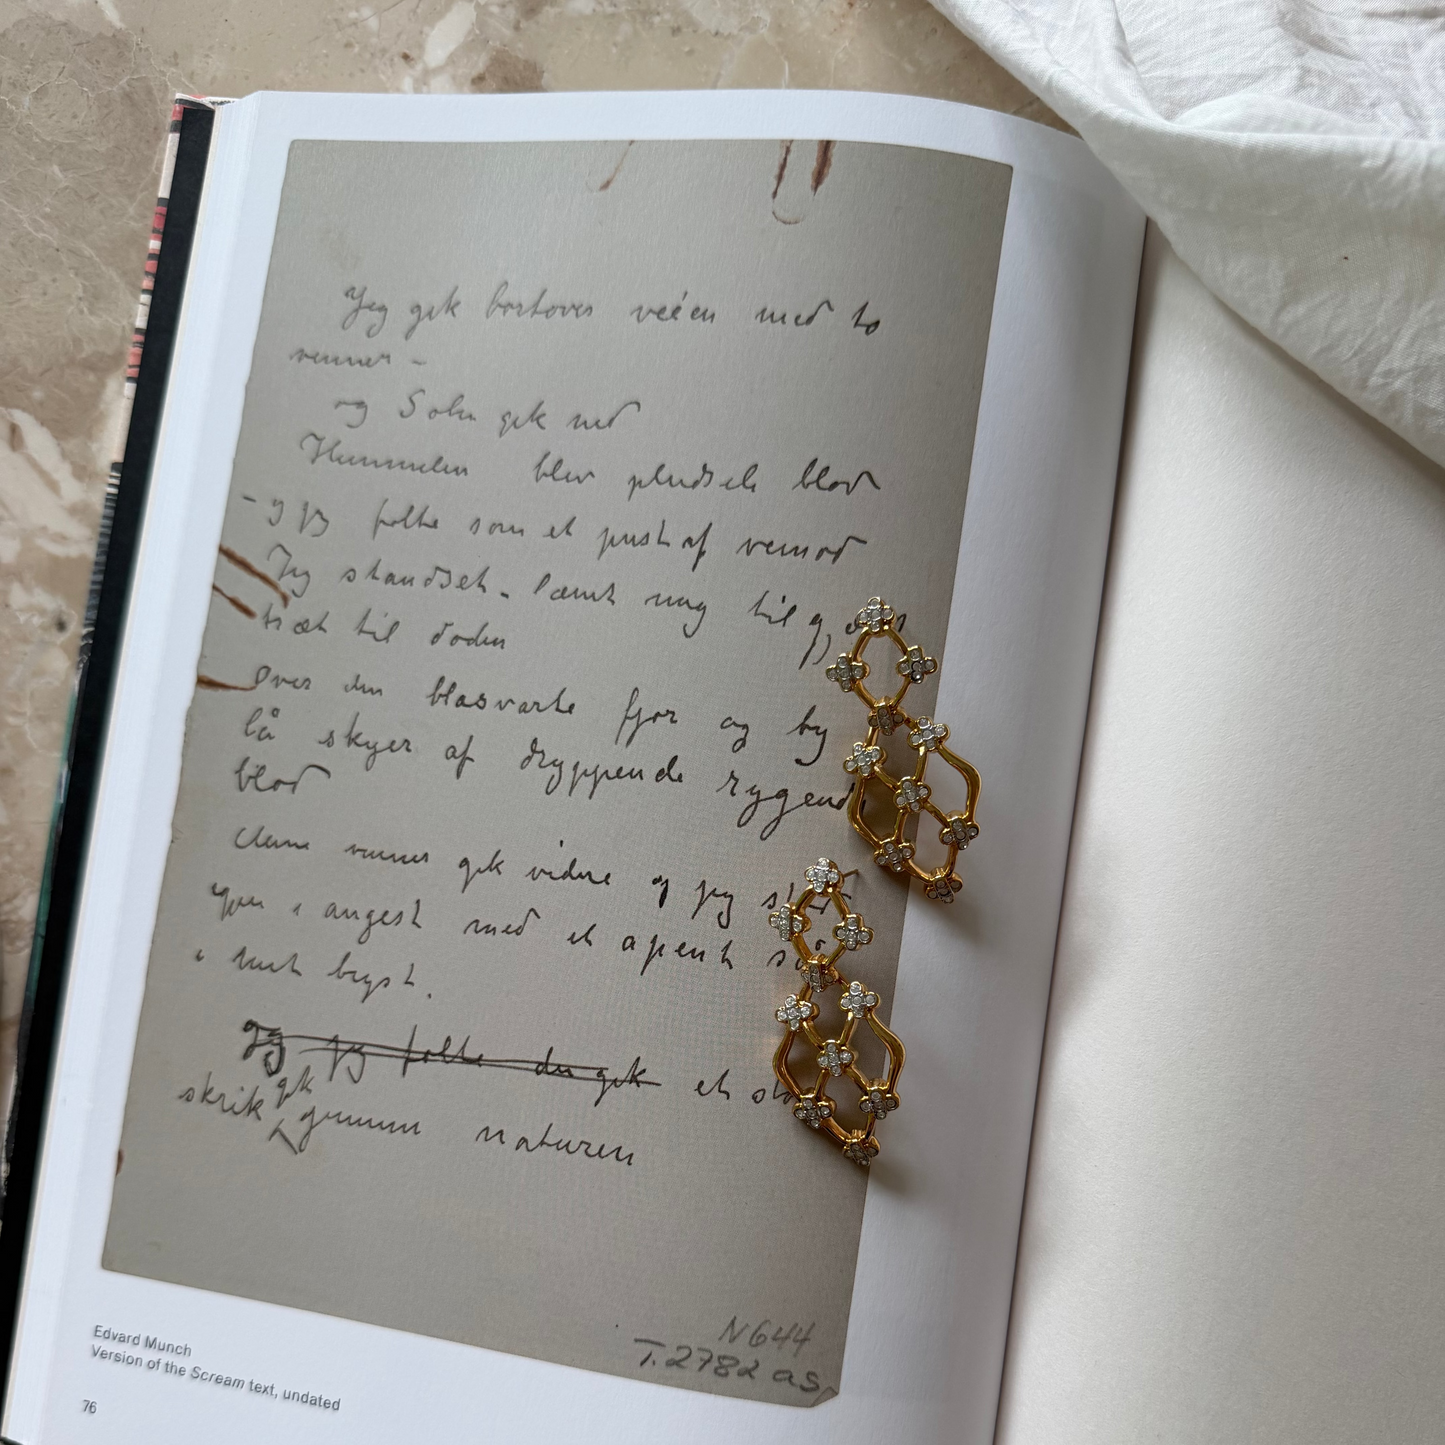 Jeg gik bortover veien med to
venner –
og Solen gik ned
Himmelen blev pludseli blod
– og jeg følte som et pust af vemod
Jeg standset – lænet mig til
træt til døden
Over den blåsvarte fjor og by
lå skyer af dryppende rygend
blod
Mine venner gik videre og jeg
igjen i angest med et åpent
i mit bryst.
jeg følte der gik et
skrik gik gjennem naturen
N 644
T. 2782 as
Edvard Munch
Version of the Scream text, undated
76